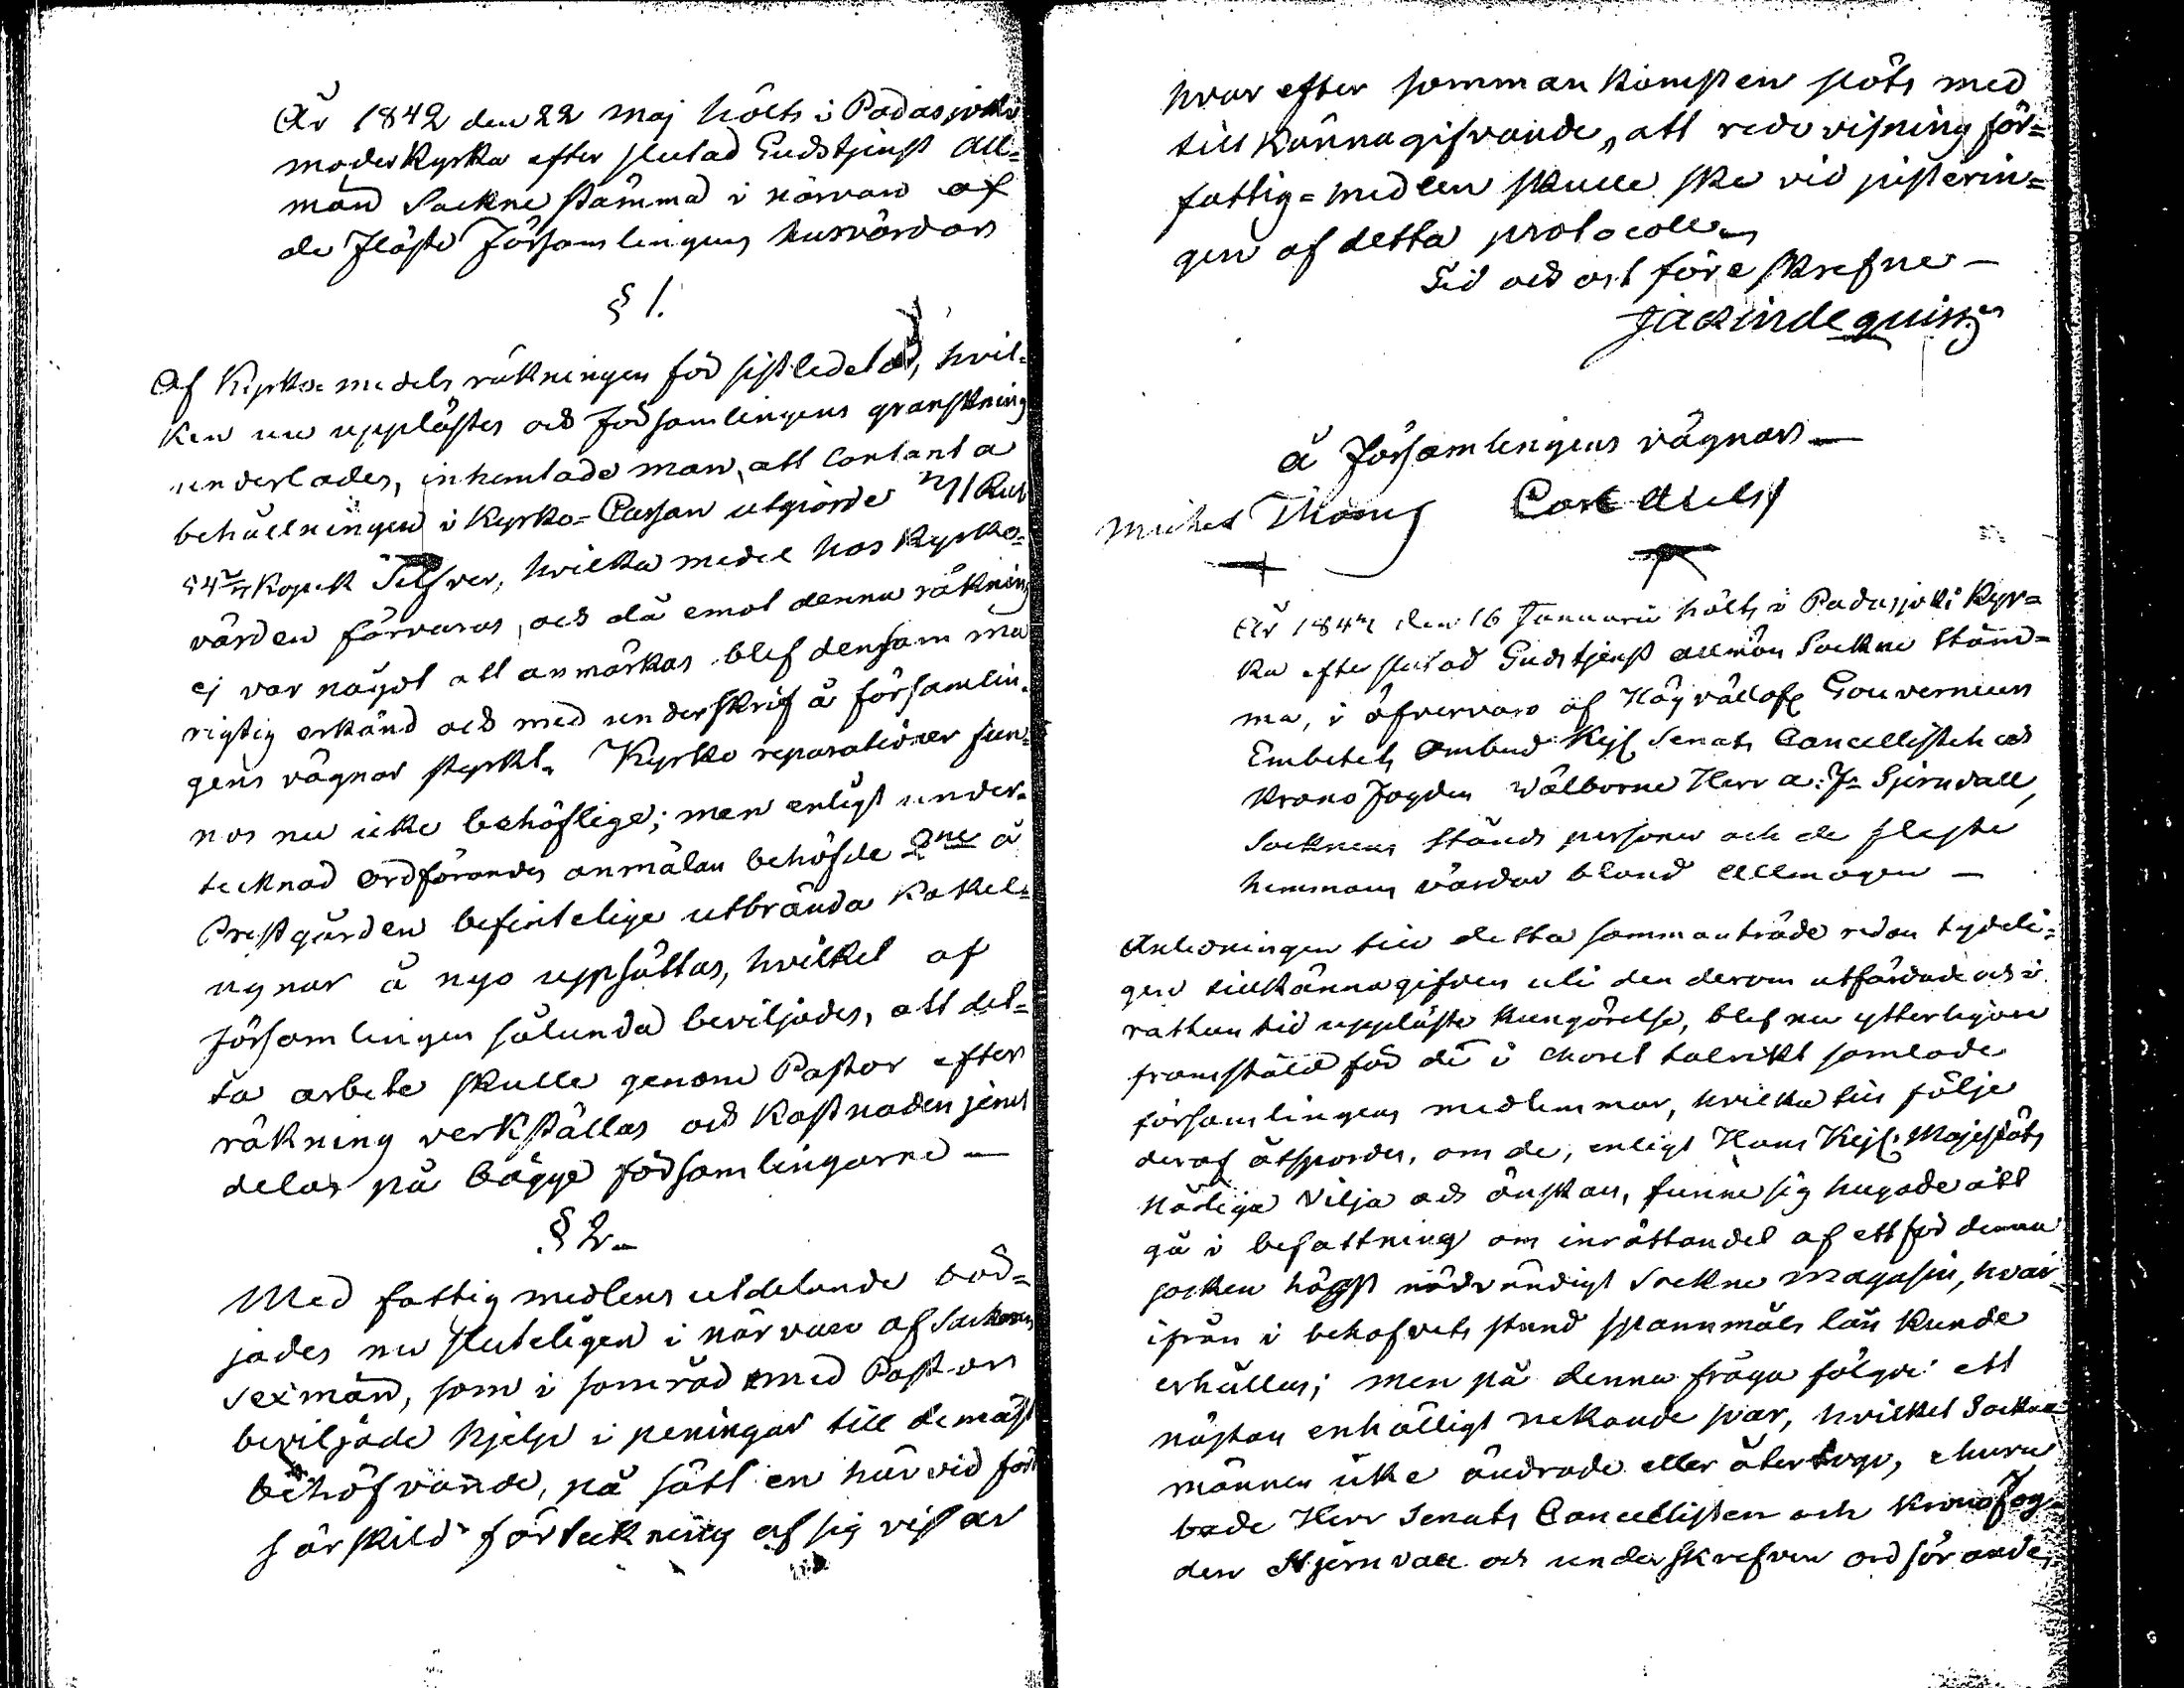 År 1842 den 22 Maj hölts i Padasjoki
moderkyrka efter slutad Gudstjenst All=
män Sockne stämma i närvaro af
de fläste Församlingens husvärdar
§ 1.
Af Kyrko medels räkningen för sistledet år, hvil=
ken nu upplästes och Församlingens granskning
underlades, inhemtade man, att Contanta
behållningen i Kyrko=Cassan utgiorde Rub
Kopek Silfver, hvilka medel hos Kyrko=
värden förvaras, och då emot denna räkning
ej var något att anmärkas blef densamma
rigtig erkänd och med underskrif å församlin=
gens vägnar styrkt. Kyrko reparationer fun=
nos nu icke behöflige; men enligt under=
tecknad Ordförandes anmälan behöfde 2ne å
Prestgården befintelige utbrända Kakel=
ugnar å nyo uppsättas, hvilket af
Församlingen sålunda beviljades, att det=
ta arbete skulle genom Pastor efter
räkning verkställas och kostnaden jemt
delas på bägge församlingarne —
§ 2.
Med fattig medlens utdelande böd=
jades nu sluteligen i närvaro af Socknens
Sexmän, som i samråd med Pastor
beviljade hjelp i peningar till de mäst
behöfvande, på sätt en här vid för
särskild förteckning af sig visar
hvar efter sammankomsten slöts med
till känna gifvande, att redovisning för=
fattig=medlen skulle ske vid justerin=
gen af detta protocoll.
Tid och ort före skrefne —
å Församlingens vägnar —
Michel Thomas Carl
År 184 den 16 Januarii hölts i Padasjoki Kyr=
ka efter slutad Gudstjenst allmän Sockne stäm=
ma, i öfvervaro af Högvällofl Gouverneurs
Embetets Ombud Kejs Senats Cancellisten och
Krono Fogden Wälborne Herr A: F: Sjernvall,
Socknens Stånds personer och de flesta
hemmans värdar bland Allmogen —
Anledningen till detta sammanträde redan tydeli=
gen tillkännagifven uti den derom utfärdade och i
rattan tid uppläste kungörelse, blef nu ytterligare
framstäld för de i choret talrikt samlade
församlingens medlemmar, hvilka till följe
deraf åtspordes, om de, enligt Hans Kejs. Majestäts
Nådiga Vilja och önskan, funne sig hugade att
gå i befattning om inrättandet af ett för denna
socken högst nödvändigt Sockne Magasin, hvar=
ifrån i behofvets stund spannmåls lån kunde
erhållas; men på denna fråga fölgde ett
nästan enhälligt nekande svar, hvilket Sockne
männen icke ändrade eller återtogo, ehuru
bade Herr Senats Cancellisten och Kronofog=
den Stjernvall och underskrefven ordförande,